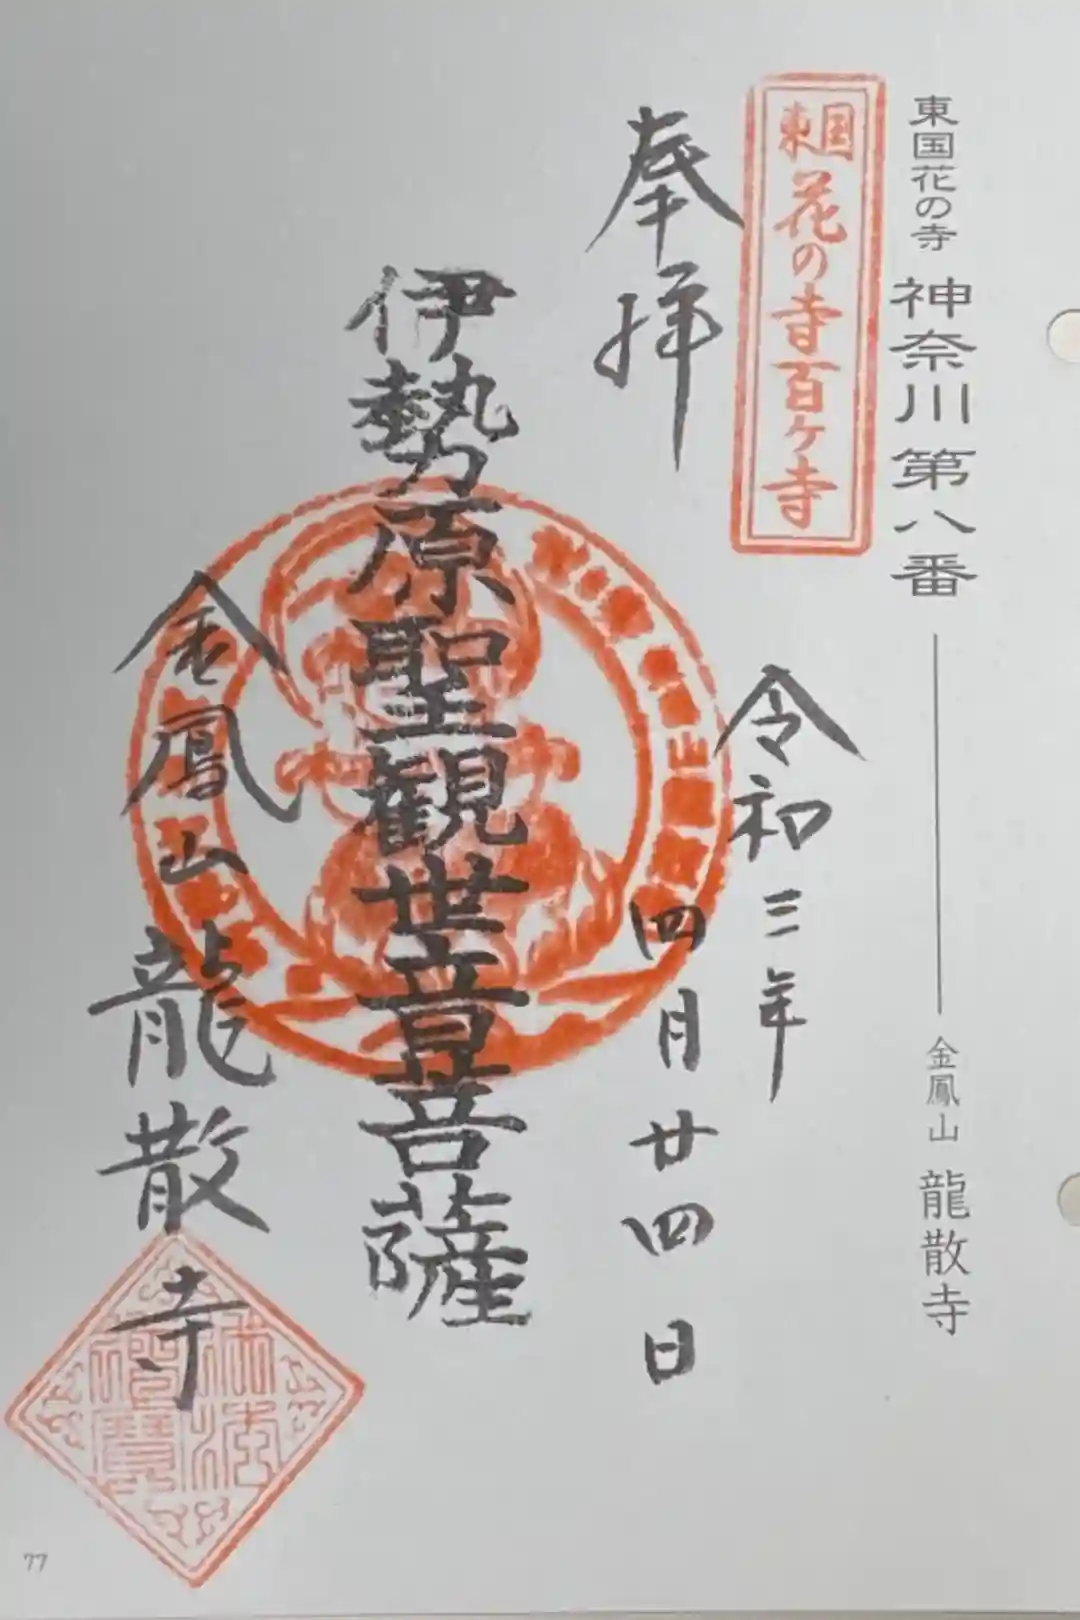 東国花の寺 神奈川第八番
金鳳山 龍散寺
東国
花の寺百ケ寺
奉拝
令和三年
四月廿四日
伊勢原聖観世音菩薩
金鳳山龍散寺
77